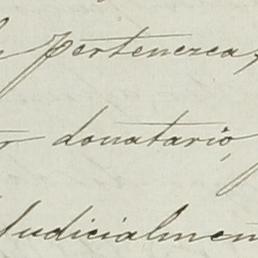 pertenezca,
donatario,
Judicialmen